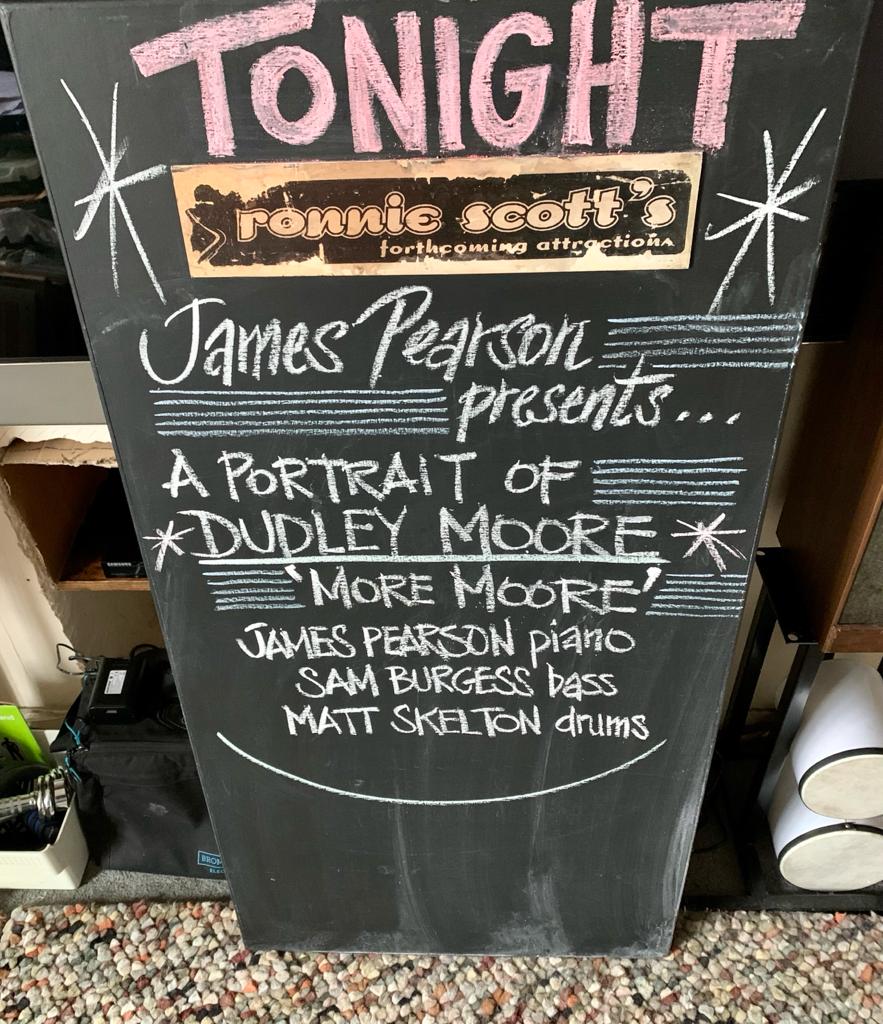 TONIGHT
ronnie scott's
forthcoming attractions
James Pearson
presents...
A PORTRAIT OF
DUDLEY MOORE
'MORE MOORE'
JAMES PEARSON piano
SAM BURGESS bass
MATT SKELTON drums
SAMSUNG
BROM
ELEC